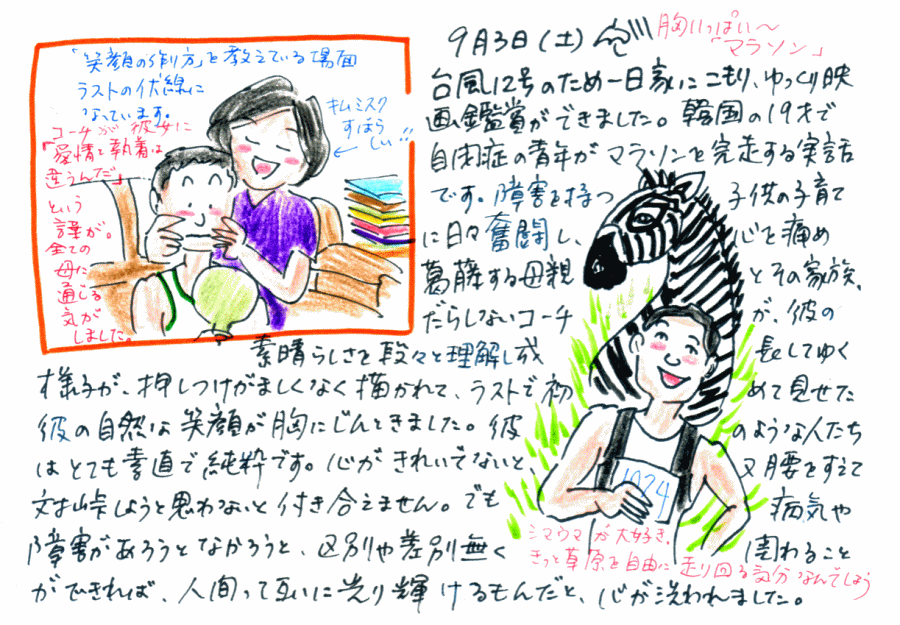 「笑顔の作り方」を教えている場面
ラストの伏線に
なっています。
キムミスク
すばら
しい!!
コーチが彼女に
「愛情と執着は
違うんだ」
という
諍が。
全ての
母に
通じる
気が
しました。
9月3日(土)
胸いっぱい〜
「マラソン」
台風12号のため一日家にこもり、ゆっくり映
画鑑賞ができました。韓国の19才で
自閉症の青年がマラソンを完走する実話
です。障害を持つ子供の子育て
に日々奮闘し、心を痛め
葛藤する母親とその家族、
だらしないコーチが、彼の
素晴らしさを段々と理解し成長してゆく
様子が、押しつけがましくなく描かれて、ラストで初めて見せた
彼の自然な笑顔が胸にじんときました。彼のような人たち
はとても素直で純粋です。心がきれいでないと、又腰をすえて
対峙しようと思わないと付き合えません。でも病気や
障害があろうとなかろうと、区別や差別無く関わること
ができれば、人間って互いに光り輝けるもんだと、心が洗われました。
1024
シマウマが大好き。
きっと草原を自由に走り回る気分なんでしょう